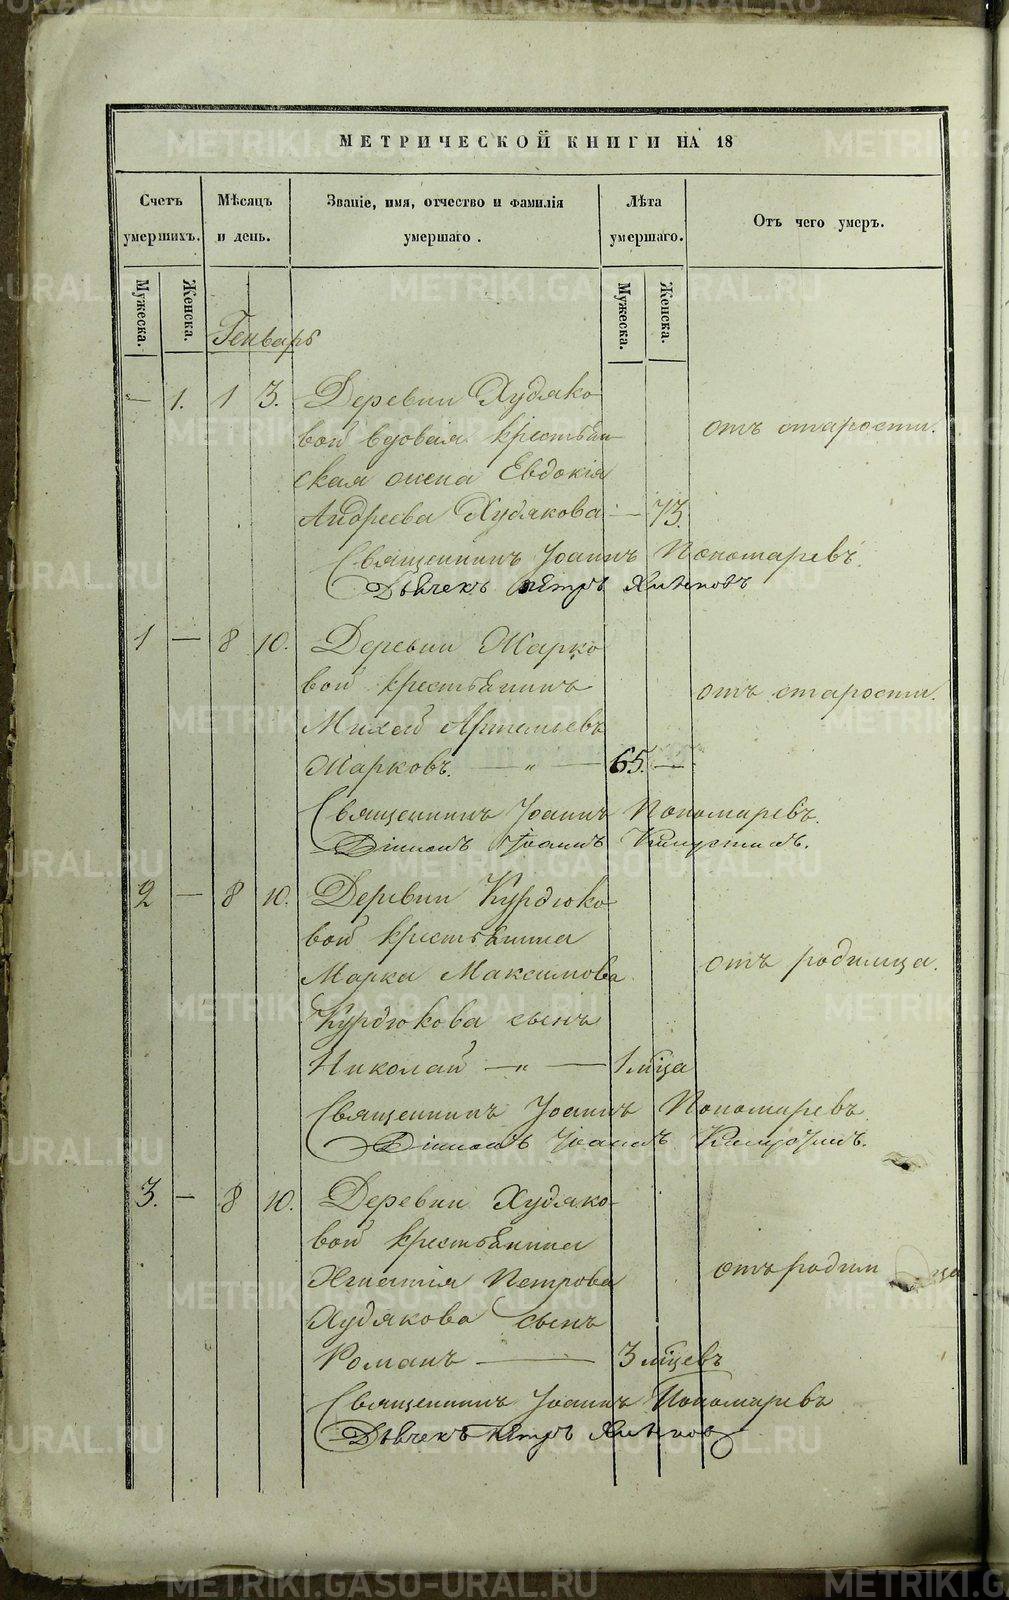 МЕТРИЧЕСКОЙ КНИГИ НА 18
Счетъ умершихъ.
Мѣсяцъ и день.
Званіе, имя, отчество и фамилія умершаго.
Лѣта умершаго.
Отъ чего умеръ.
Мужеска.
Женска.
Мужеска.
Женска.
Генварь
— 1. 1 3. Деревни Худяко-
вой вдовая крестьян-
ская жена Евдокія
Андреева Худякова — 73.
отъ старости.
Священникъ Іоаннъ Пономаревъ.
Дьячекъ Петръ
1 — 8 10. Деревни Марко-
вой крестьянинъ
Михей Артемьевъ
Марковъ. — „ — 65. —
отъ старости.
Священникъ Іоаннъ Пономаревъ.
Діаконъ Іоаннъ
2 — 8 10. Деревни Курдюко-
вой крестьянина
Марка Максимова
Курдюкова сынъ
Николай — „ — 1 мца
отъ родимца.
Священникъ Іоаннъ Пономаревъ
Діаконъ Іоаннъ
3. — 8 10. Деревни Худяко-
вой крестьянина
Игнатія Петрова
Худякова сынъ
Романъ — 3 мцевъ
отъ родимца
Священникъ Іоаннъ Пономаревъ
Дьячекъ Петръ
METRIKI.GASO-URAL.RU